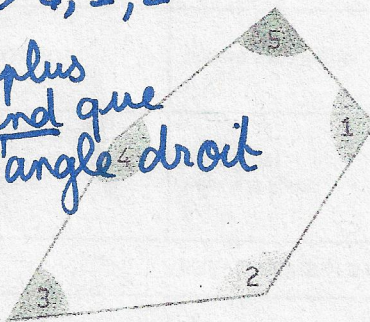 4, 1, 2
plus
nd que
angle droit
5
1
4
2
3